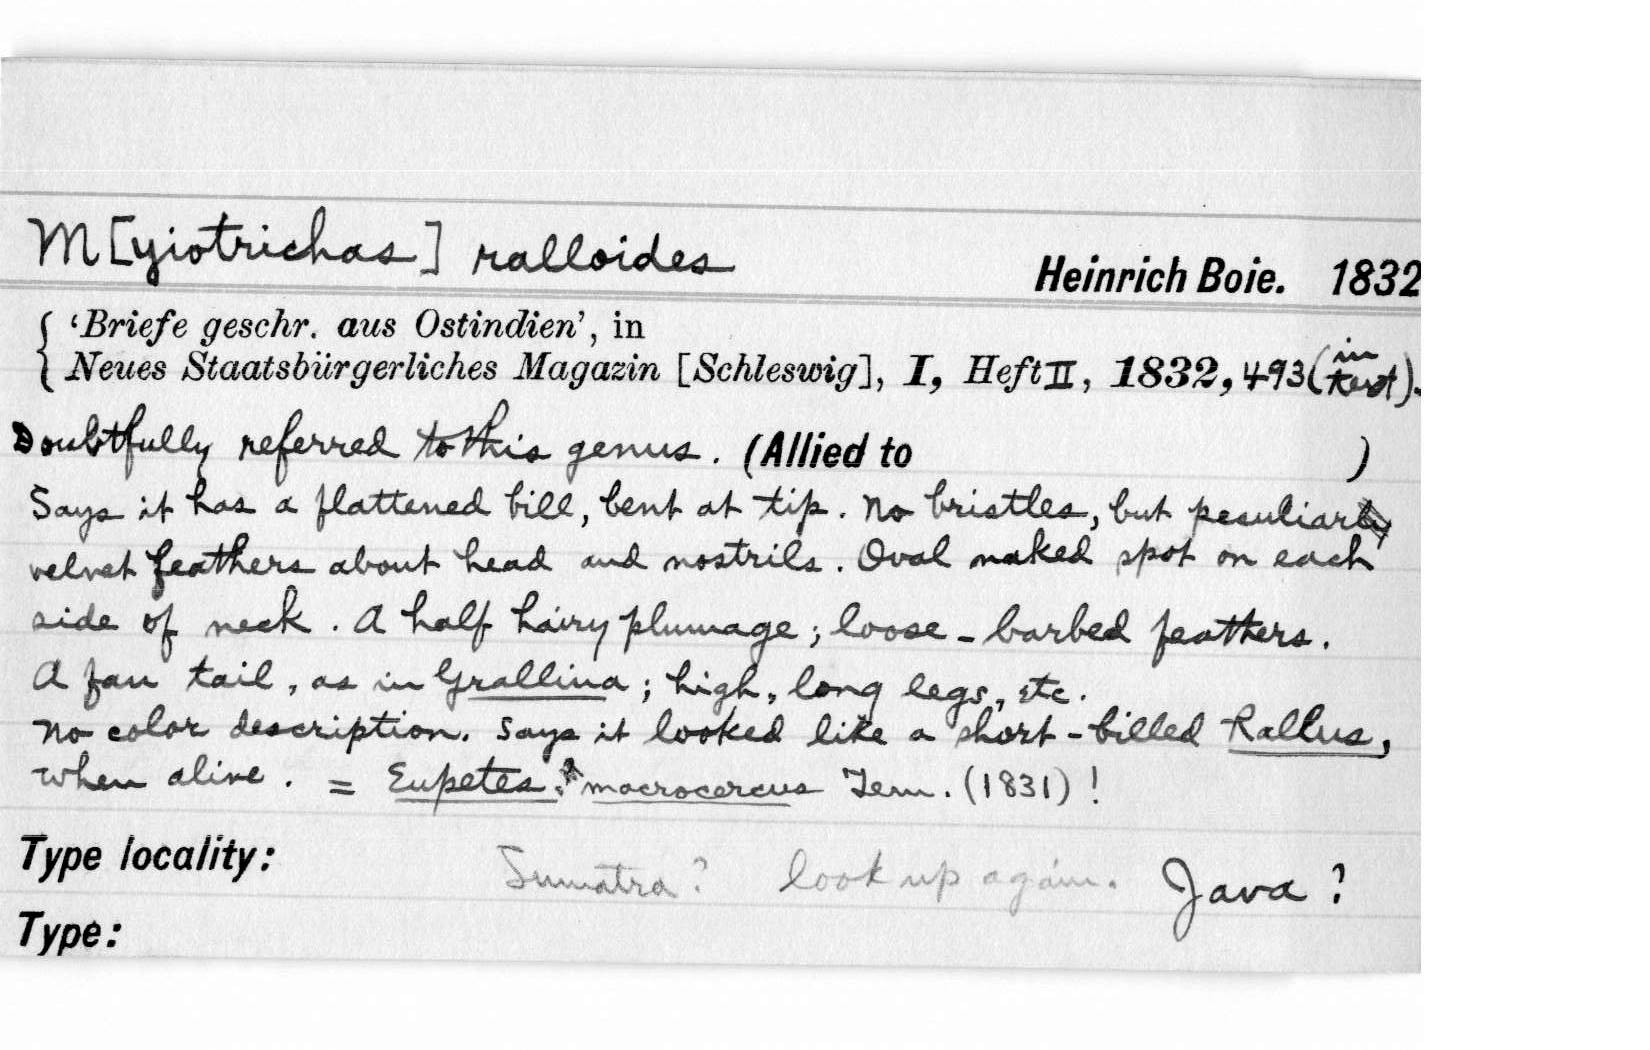 M[yiotrichas] ralloides
Heinrich Boie. 1832
'Briefe geschr. aus Ostindien', in
Neues Staatsbürgerliches Magazin [Schleswig], I, Heft II, 1832, 493 (in text).
Doubtfully referred to this genus. (Allied to )
Says it has a flattened bill, bent at tip. No bristles, but peculiar
velvet feathers about head and nostrils. Oval naked spot on each
side of neck. A half hairy plumage; loose-barbed feathers.
A fan tail, as in Grallina; high, long legs, etc.
No color description. Says it looked like a short-billed Rallus,
when alive. = Eupetes macrocercus Tem. (1831)!
Type locality: Sumatra? look up again. Java?
Type: